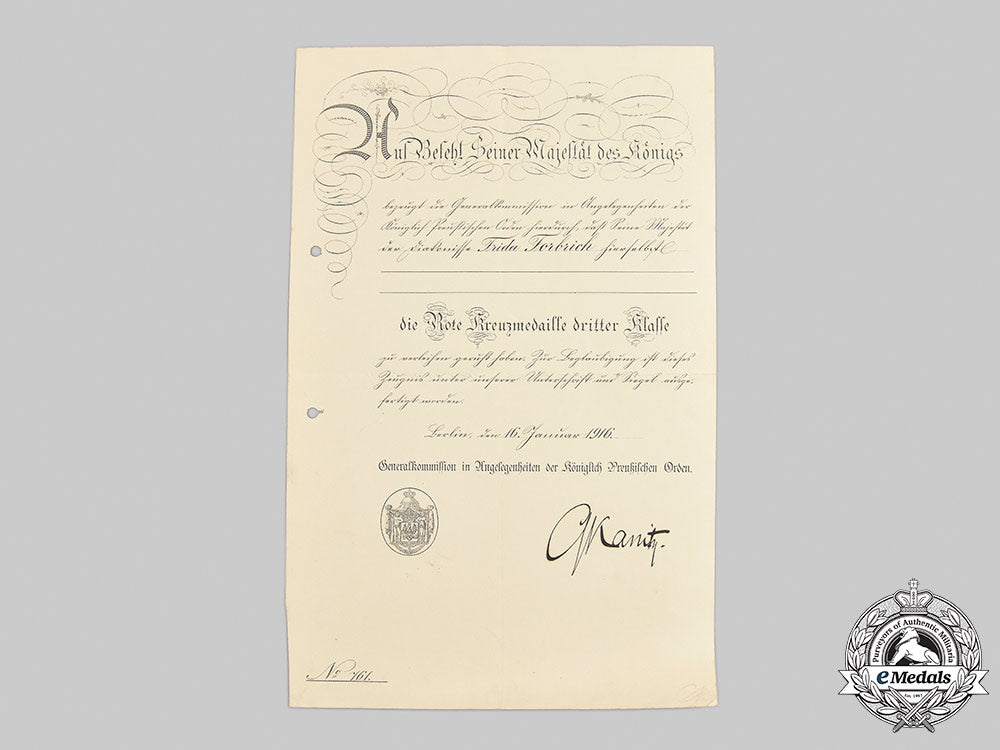 Auf Befehl Seiner Majestät des Königs
bezeugt die Generalkommission in Angelegenheiten der
Königlich Preußischen Orden hierdurch, daß Seine Majestät
der Diakonisse Frida Torbrich hierselbst
die Rote Kreuzmedaille dritter Klasse
zu verleihen geruht haben. Zur Beglaubigung ist dieses
Zeugnis unter unserer Unterschrift und Siegel ausge-
fertigt worden.
Berlin, den 16. Januar 1916.
Generalkommission in Angelegenheiten der Königlich Preußischen Orden.
Kanitz.
No 761.
Purveyors of Authentic Militaria
eMedals
Est. 1967